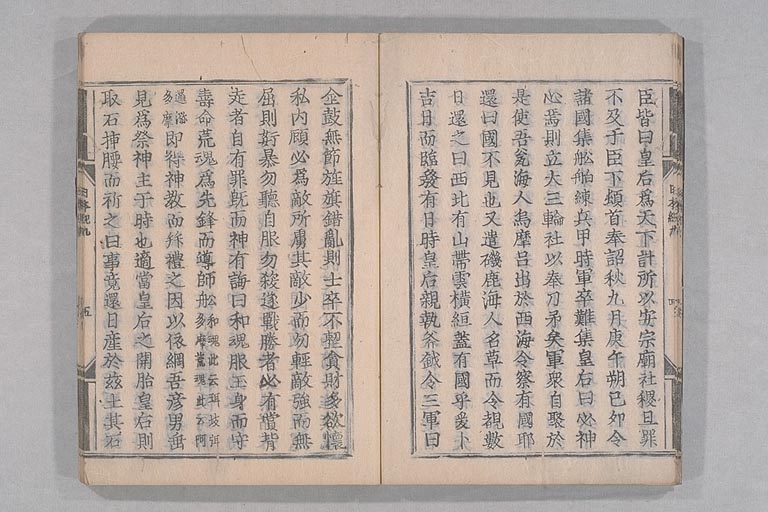 臣皆曰皇后爲天下計所以安宗廟社稷且罪
不及于臣下頓首奉詔秋九月庚午朔己卯令
諸國集舩舶練兵甲時軍卒難集皇后曰必神
心焉則立大三輪社以奉刀矛矣軍衆自聚於
是使吾瓮海人烏摩呂出於西海令察有國耶
還曰國不見也又遣磯鹿海人名草而令視數
日還之曰西北有山帶雲橫絚蓋有國乎爰卜
吉日而臨發有日時皇后親執斧鉞令三軍曰
金鼓無節旌旗錯亂則士卒不整貪財多欲懷
私內顧必爲敵所虜其敵少而勿輕敵強而無
屈則姧暴勿聽自服勿殺遂戰勝者必有賞背
走者自有罪既而神有誨曰和魂服王身而守
壽命荒魂爲先鋒而導師舩和魂此云珥岐瀰多摩荒魂此云阿
邏瀰多摩即得神教而拜禮之因以依網吾彦男垂
見爲祭神主于時也適當皇后之開胎皇后則
取石挿腰而祈之曰事竟還日産於茲土其石
日本紀九
五